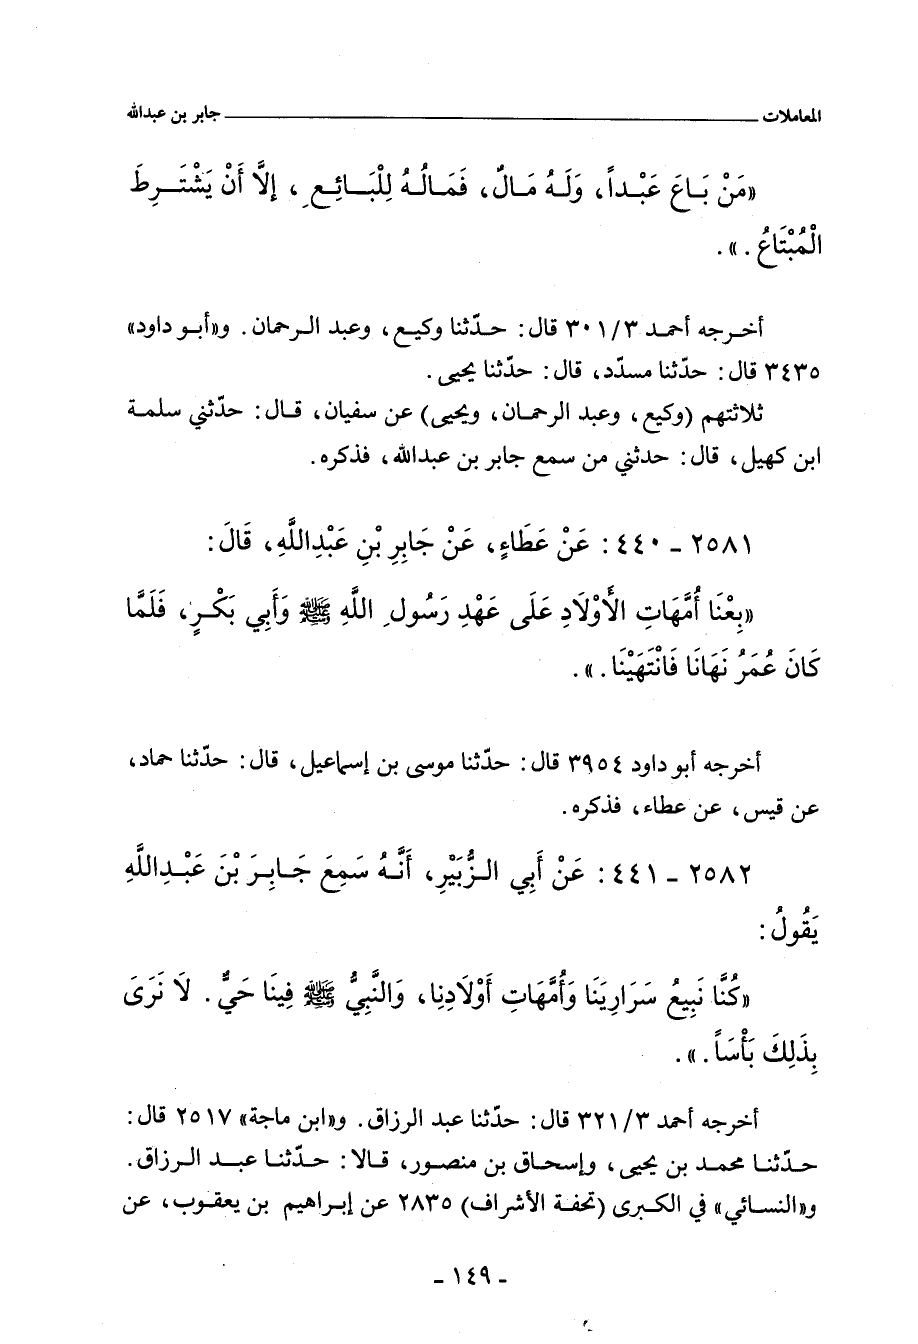 المعاملات ــــــــــ جابر بن عبدالله
«مَنْ بَاعَ عَبْداً، وَلَهُ مَالٌ، فَمَالُهُ لِلْبَائِعِ، إلاَّ أَنْ يَشْتَرِطَ
الْمُبْتَاعُ.».
أخرجه أحمد ٣٠١/٣ قال: حدّثنا وكيع، وعبد الرحمان. و«أبو داود»
٣٤٣٥ قال: حدّثنا مسدّد، قال: حدّثنا يحيى.
ثلاثتهم (وكيع، وعبد الرحمان، ويحيى) عن سفيان، قال: حدّثني سلمة
ابن كهيل، قال: حدثني من سمع جابر بن عبدالله، فذكره.
٢٥٨١ - ٤٤٠: عَنْ عَطَاءٍ، عَنْ جَابِرِ بْنِ عَبْدِاللَّهِ، قَالَ:
«بِعْنَا أُمَّهَاتِ الأَوْلاَدِ عَلَى عَهْدِ رَسُولِ اللَّهِ ﷺ وَأَبِي بَكْرٍ، فَلَمَّا
كَانَ عُمَرُ نَهَانَا فَانْتَهَيْنَا.».
أخرجه أبو داود ٣٩٥٤ قال: حدّثنا موسى بن إسماعيل، قال: حدّثنا حماد،
عن قيس، عن عطاء، فذكره.
٢٥٨٢ - ٤٤١: عَنْ أَبِي الزُّبَيْرِ، أَنَّهُ سَمِعَ جَابِرَ بْنَ عَبْدِاللَّهِ
يَقُولُ:
«كُنَّا نَبِيعُ سَرَارِيَنَا وَأُمَّهَاتِ أَوْلاَدِنِا، وَالنَّبِيُّ ﷺ فِينَا حَيٌّ. لاَ نَرَى
بِذَلِكَ بَأْسَاً.».
أخرجه أحمد ٣٢١/٣ قال: حدّثنا عبد الرزاق. و«ابن ماجة» ٢٥١٧ قال:
حدّثنا محمد بن يحيى، وإسحاق بن منصور، قالا: حدّثنا عبد الرزاق.
و«النسائي» في الكبرى (تحفة الأشراف) ٢٨٣٥ عن إبراهيم بن يعقوب، عن
- ١٤٩ -